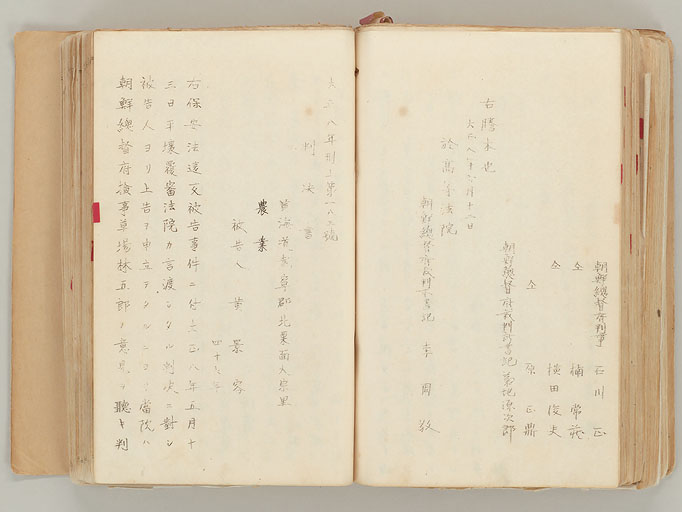 朝鮮總督府判事 石川正
仝 楠常藏
仝 横田俊夫
仝 原正鼎
朝鮮總督府裁判所書記 菊地源次郎
右謄本也
大正八年六月十二日
於高等法院
朝鮮總督府裁判所書記 李圭
大正八年刑上第一八三號
判決書
黄海道 郡北栗面大 里
農業
被告人 黄景
四十 年
右保安法違反被告事件ニ付大正八年五月十
三日平壤覆審法院カ言渡シタル判決ニ對シ
被告人ヨリ上告ヲ申立テタルニヨリ當院ハ
朝鮮總督府檢事草場林五郎ノ意見ヲ聽キ判